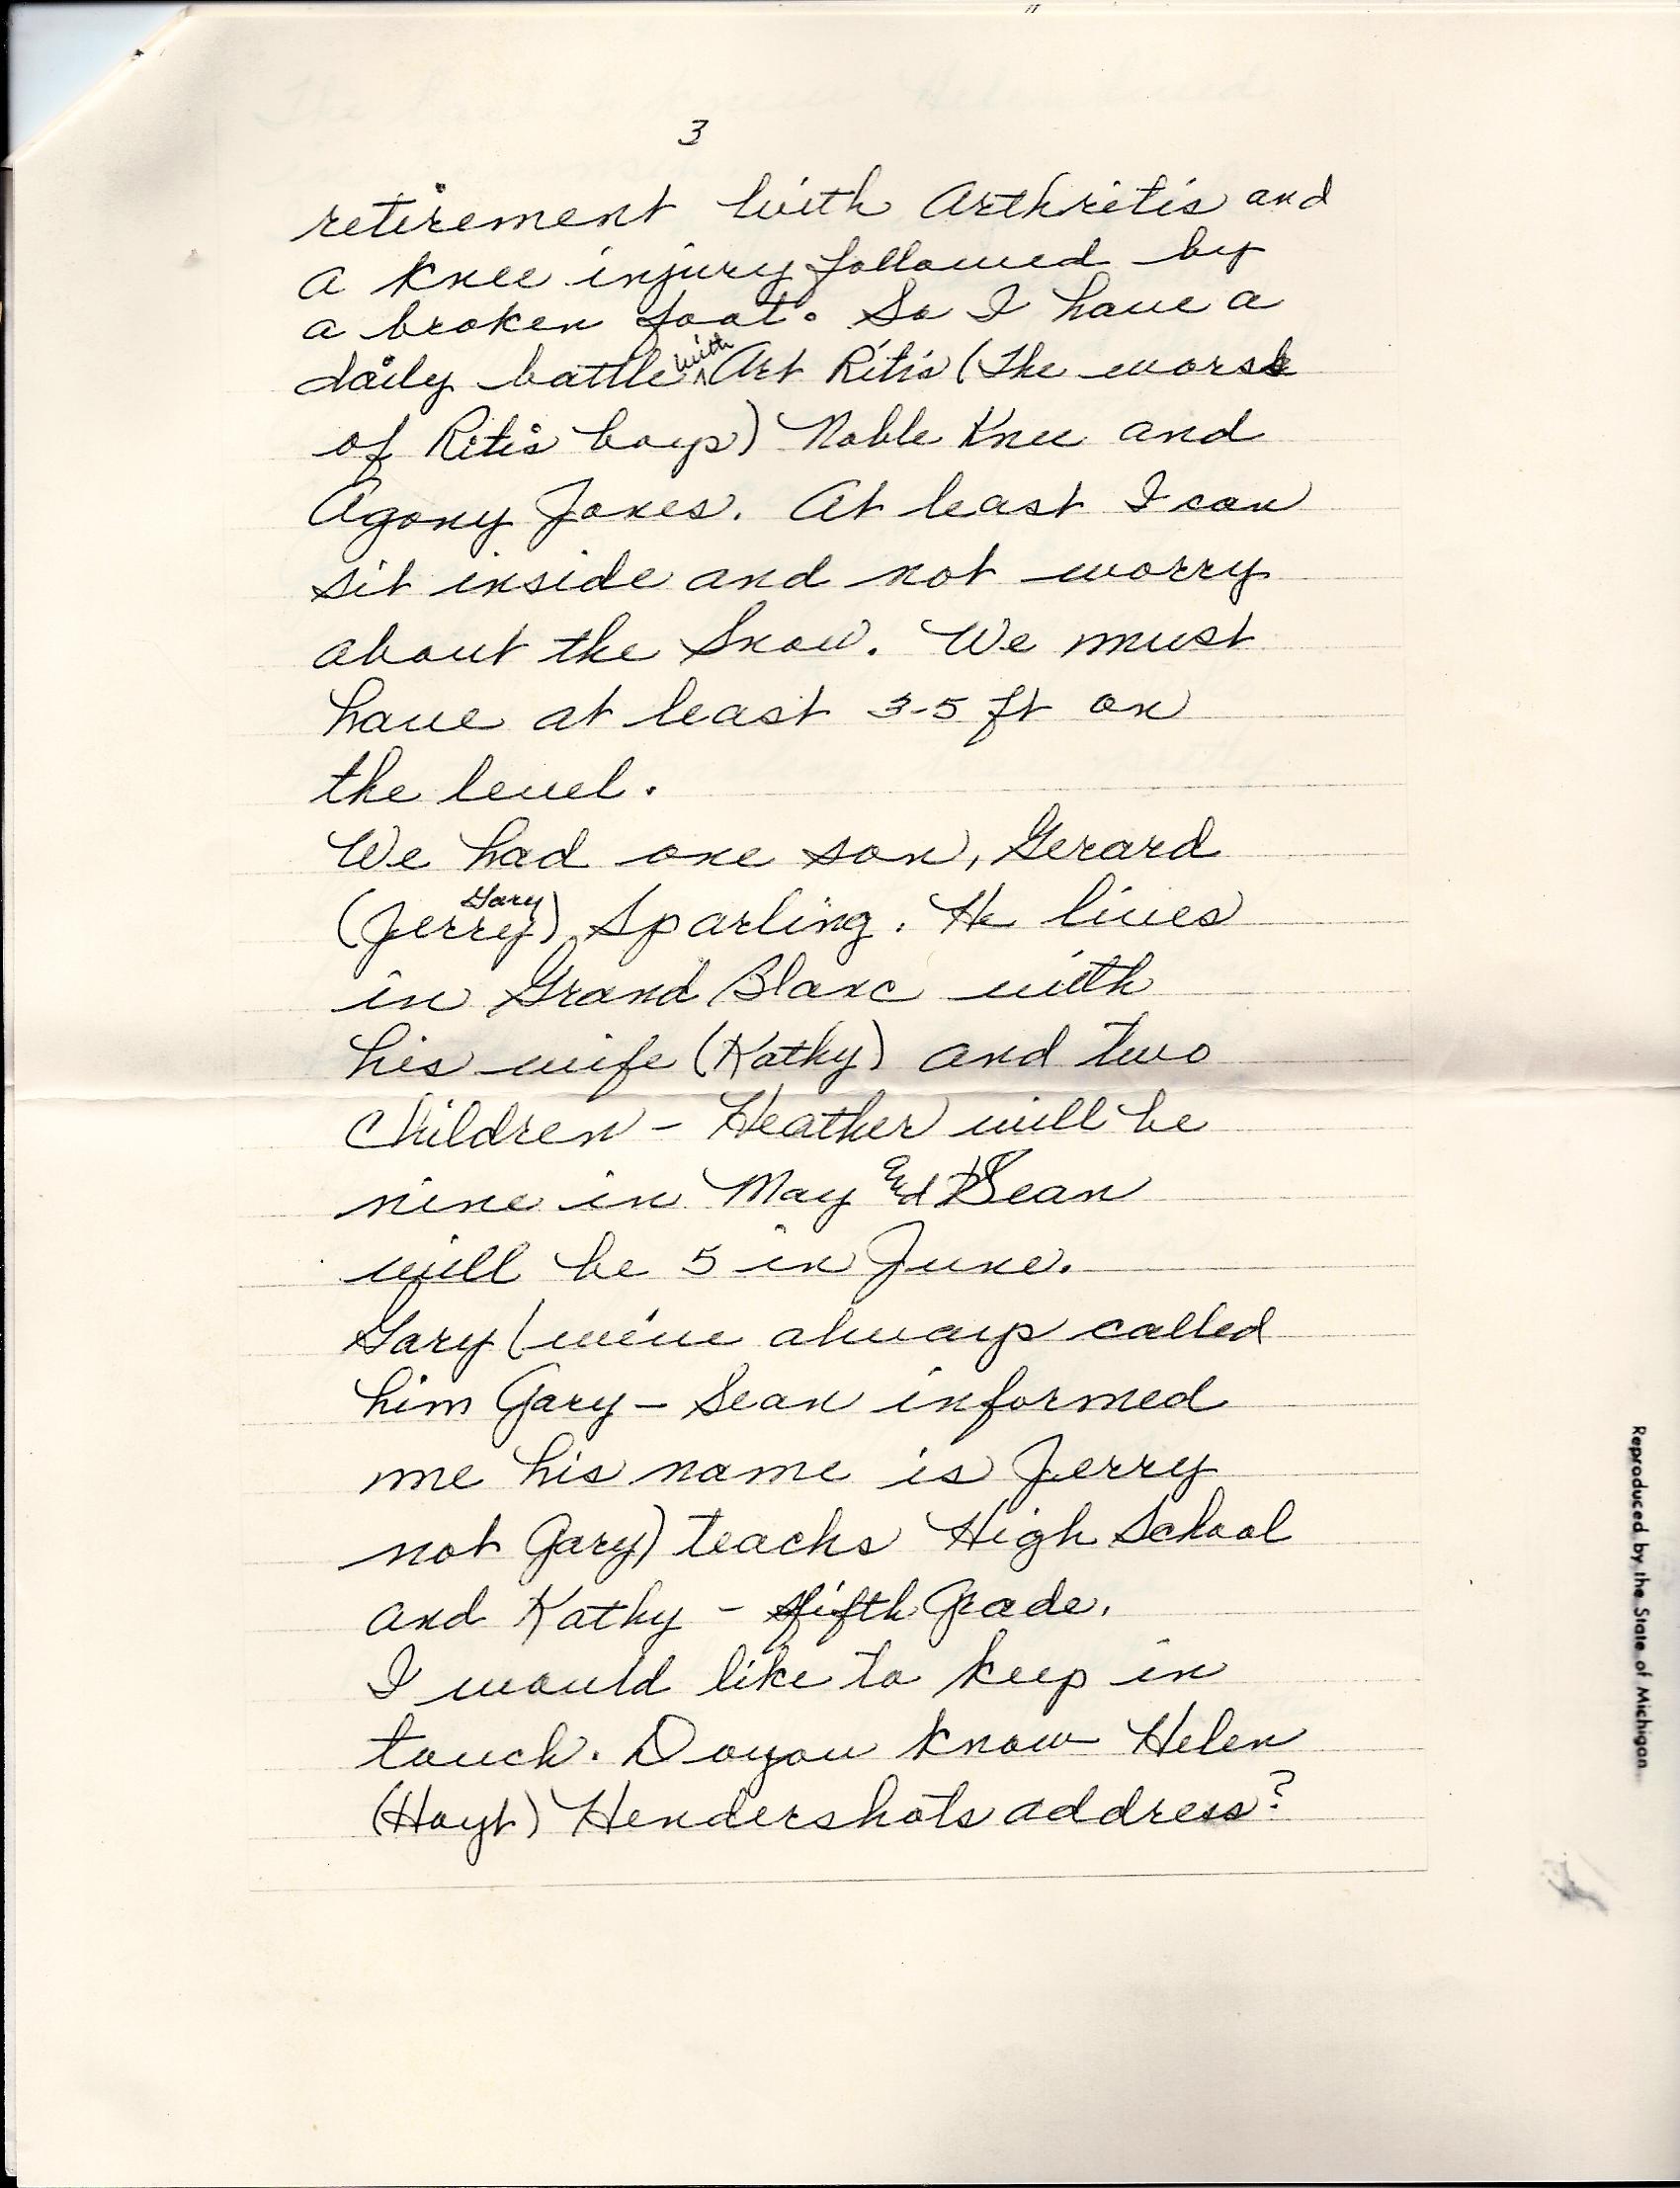 3
retirement with Arthritis and
a knee injury followed by
a broken foot. So I have a
daily battle with Art Ritis (The worst
of Ritis boys) Noble Knee and
Agony Jones. At least I can
sit inside and not worry
about the Snow. We must
have at least 3-5 ft on
the level.
We had one son, Gerard
(Jerry) Gary Sparling. He lives
in Grand Blanc with
his wife (Kathy) and two
children - Heather will be
nine in May and Sean
will be 5 in June.
Gary (we've always called
him Gary - Sean informed
me his name is Jerry
not Gary) teachs High School
and Kathy - fifth Grade.
I would like to keep in
touch. Do you know Helen
(Hoyt) Hendershots address?
Reproduced by the State of Michigan